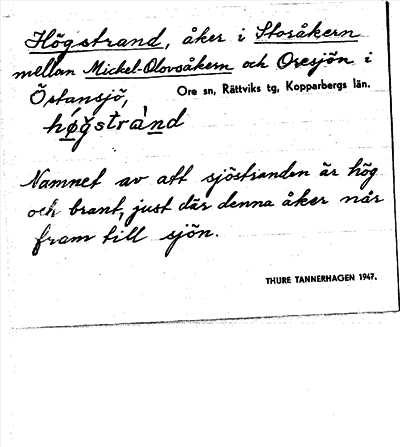 Högstrand, åker i Storåkern
mellan Mickel-Olovsåkern och Oresjön i
Östansjö, Ore sn, Rättviks tg, Kopparbergs län.
høgstrànd
Namnet av att sjöstranden är hög
och brant, just där denna åker når
fram till sjön.
THURE TANNERHAGEN 1947.